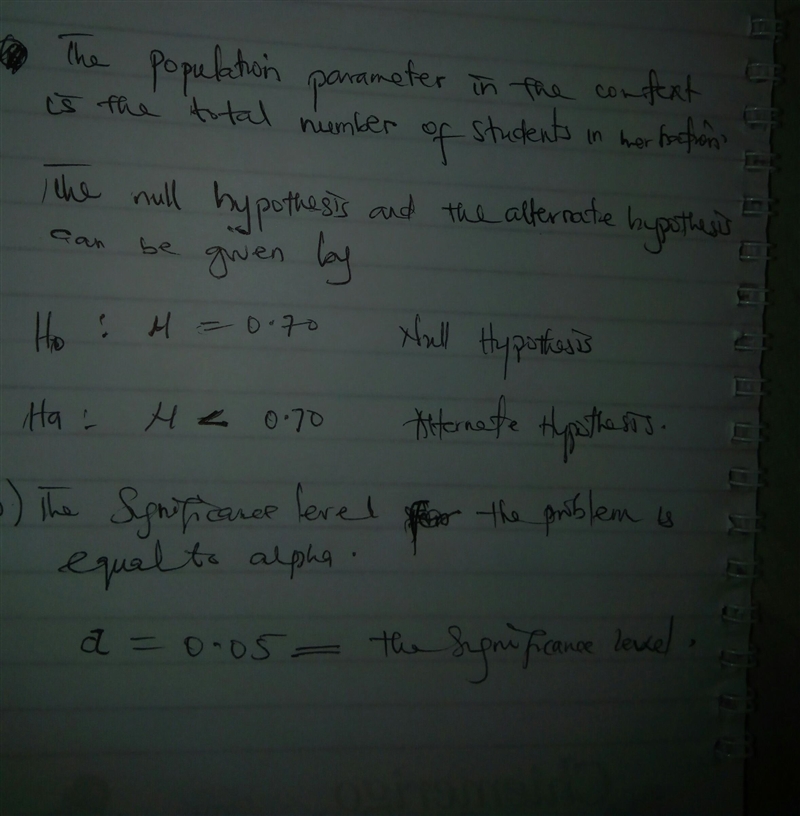 The population parameter in the context
is the total number of students in her
The null hypothesis and the alternate hypothesis
can be given by
H0 : μ = 0.70 Null Hypothesis
Ha : μ < 0.70 Alternate Hypothesis.
) The Significance level the problem is
equal to alpha.
α = 0.05 = the Significance level.